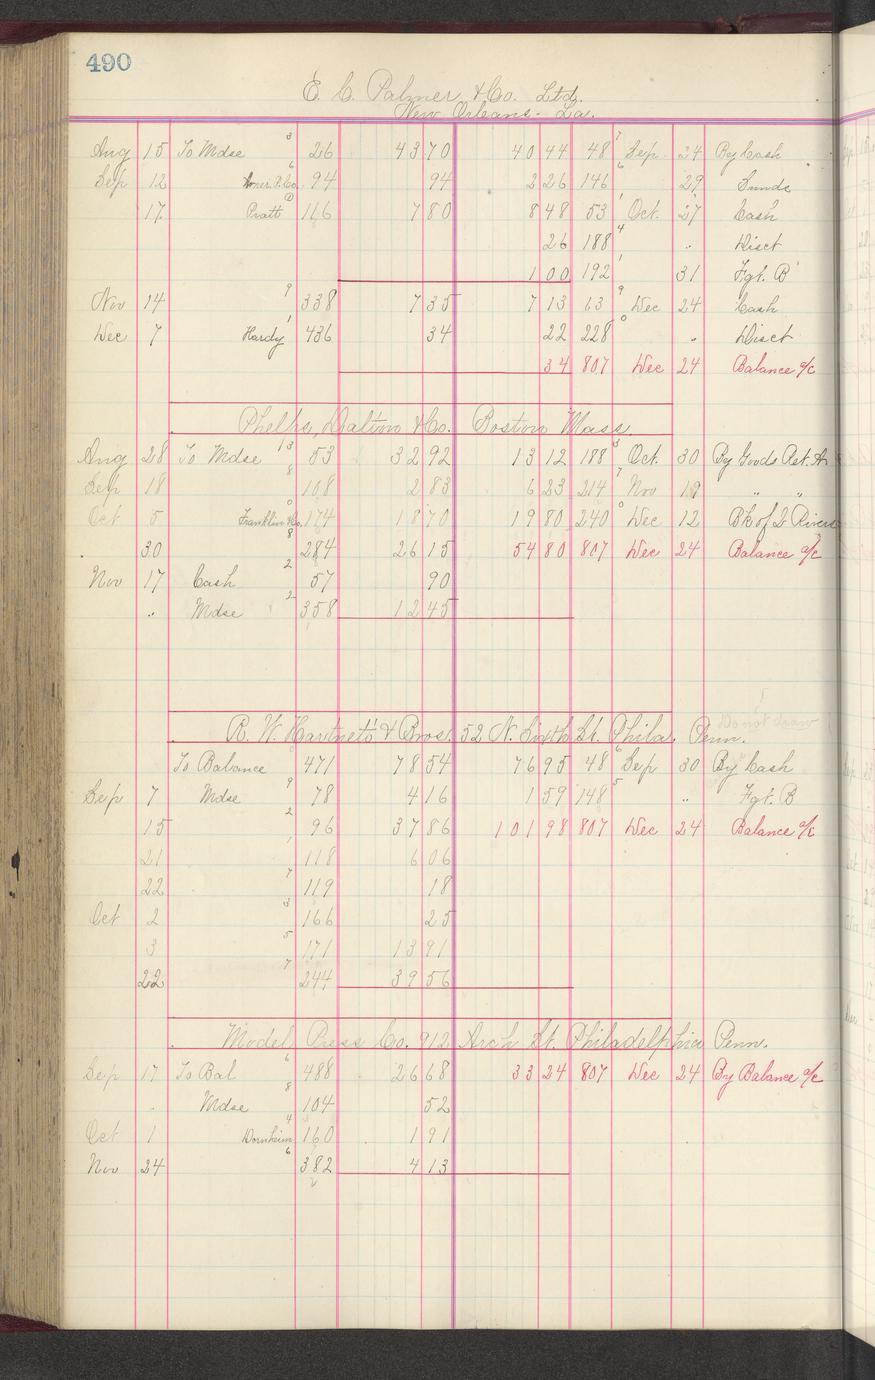 490
E. C. Palmer & Co. Ltd.
New Orleans - La.
Aug 15 To Mdse 3 26 43 70 40 44 48 7 Sep 24 By Cash
Sep 12 6 94 94 2 26 146 6 29 Sunds
17 Pratt 116 7 80 8 48 53 1 Oct. 27 Cash
26 188 4 " Disct
1 00 192 1 31 Fgt. B
Nov 14 9 338 7 35 7 13 63 9 Dec 24 Cash
Dec 7 Hardy 1 436 34 22 228 0 " Disct
34 807 Dec 24 Balance a/c
Phelps, Dalton & Co. Boston Mass.
Aug 28 To Mdse 13 53 32 92 13 12 188 3 Oct. 30 By Goods Ret.
Sep 18 8 108 2 83 6 23 214 7 Nov 19 " "
Oct 5 Franklin Co. 0 174 18 70 19 80 240 0 Dec 12 Bk of 2 Rivers
30 8 284 26 15 54 80 807 Dec 24 Balance a/c
Nov 17 Cash 2 57 90
" Mdse 2 358 12 45
Do not draw
R. W. Hartnett & Bros. 52 N. Sixth St. Phila. Penn.
To Balance 471 78 54 76 95 48 6 Sep 30 By Cash
Sep 7 Mdse 9 78 4 16 1 59 148 5 " Fgt. B
15 2 96 37 86 101 98 807 Dec 24 Balance a/c
21 1 118 6 06
22 7 119 18
Oct 2 3 166 25
3 5 171 13 91
22 7 244 39 56
Model Press Co. 912 Arch St. Philadelphia Penn.
Sep 17 To Bal 6 488 26 68 33 24 807 Dec 24 By Balance a/c
" Mdse 8 104 52
Oct 1 Dornheim 4 160 1 91
Nov 24 6 382 4 13